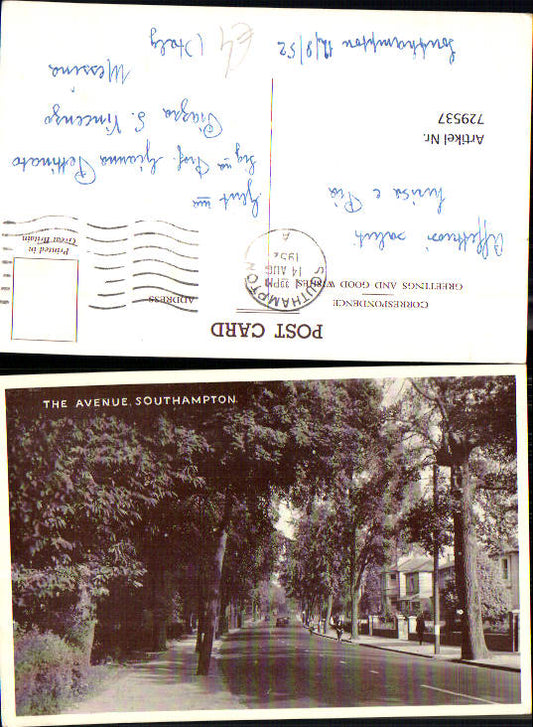 POST CARD
CORRESPONDENCE
GREETINGS AND GOOD WISHES
ADDRESS
Printed in
Great Britain
SOUTHAMPTON
A
PM
14 AUG
1952
Affettuosi saluti
Luisa e Pia
Artikel Nr.
729537
Southampton 12/8/52
Gent ma
Sig na Prof. Gianna Pettinato
Piazza S. Vincenzo
Messina
(Italy
THE AVENUE, SOUTHAMPTON.